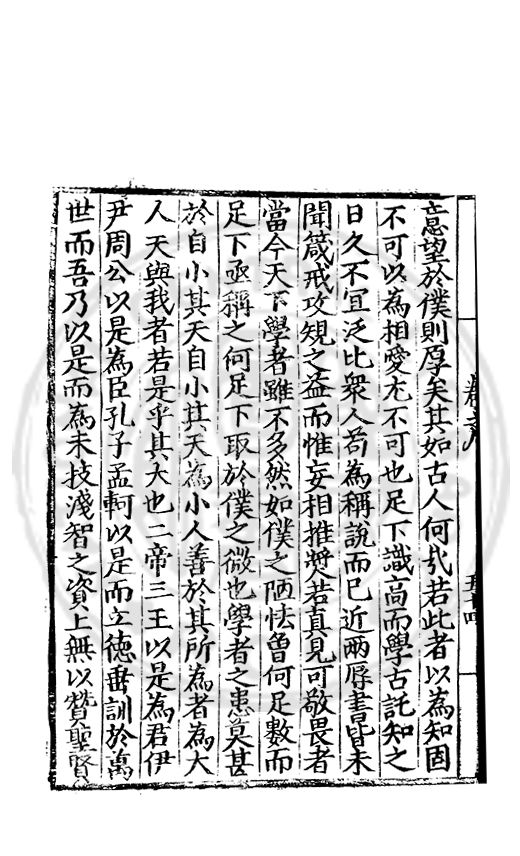 意望於僕則厚矣其如古人何哉若此者以為知固
不可以為相愛尤不可也足下識高而學古託知之
日久不宜泛比衆人苟為稱說而已近兩辱書皆未
聞箴戒攻䂓之益而惟妄相推奬若真見可敬畏者
當今天下學者雖不多然如僕之陋怯魯何足數而
足下亟稱之何足下取於僕之微也學者之患莫甚
於自小其天自小其天為小人善於其所為者為大
人天與我者若是乎其大也二帝三王以是為君伊
尹周公以是為臣孔子孟軻以是而立德垂訓於萬
世而吾乃以是而為未技淺智之資上無以贊聖賢
五十四